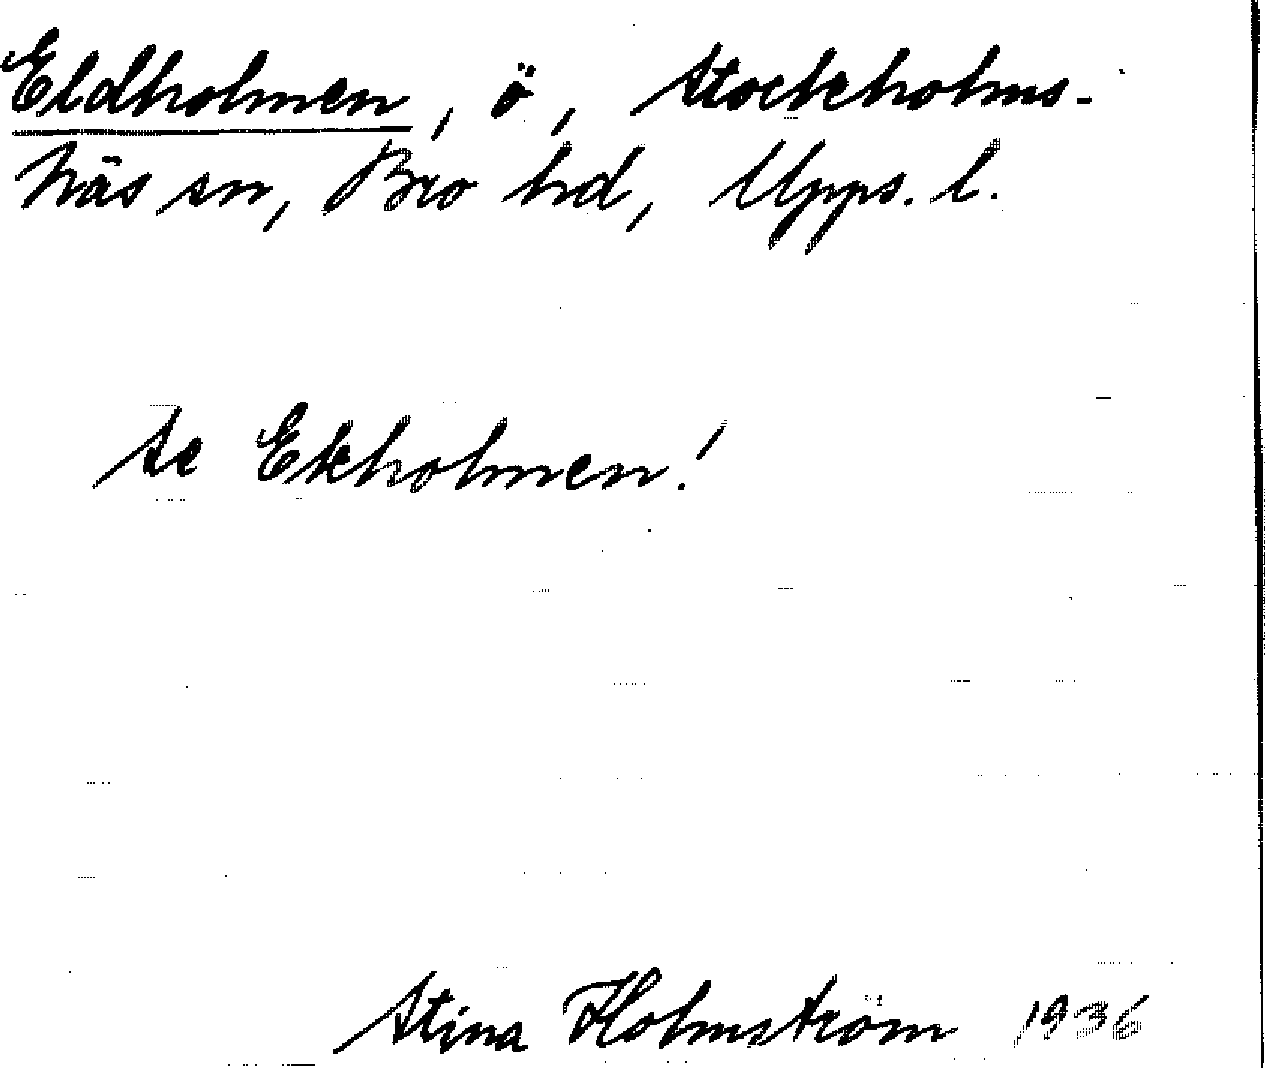 Eldholmen, ö, Stockholms-
näs sn, Bro hd, Upps. l.
Se Ekholmen!
Stina Holmström 1936